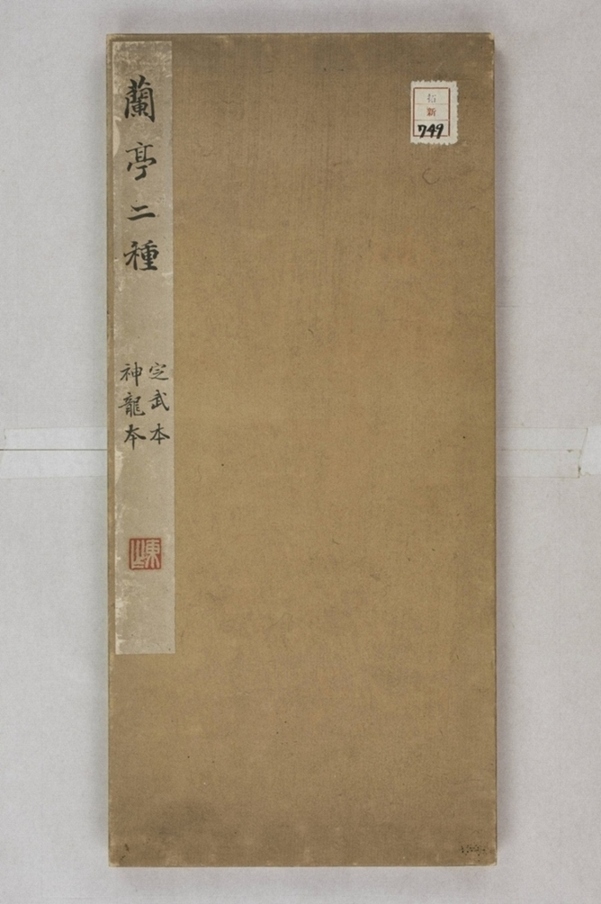 蘭亭二種
定武本
神龍本
新
749